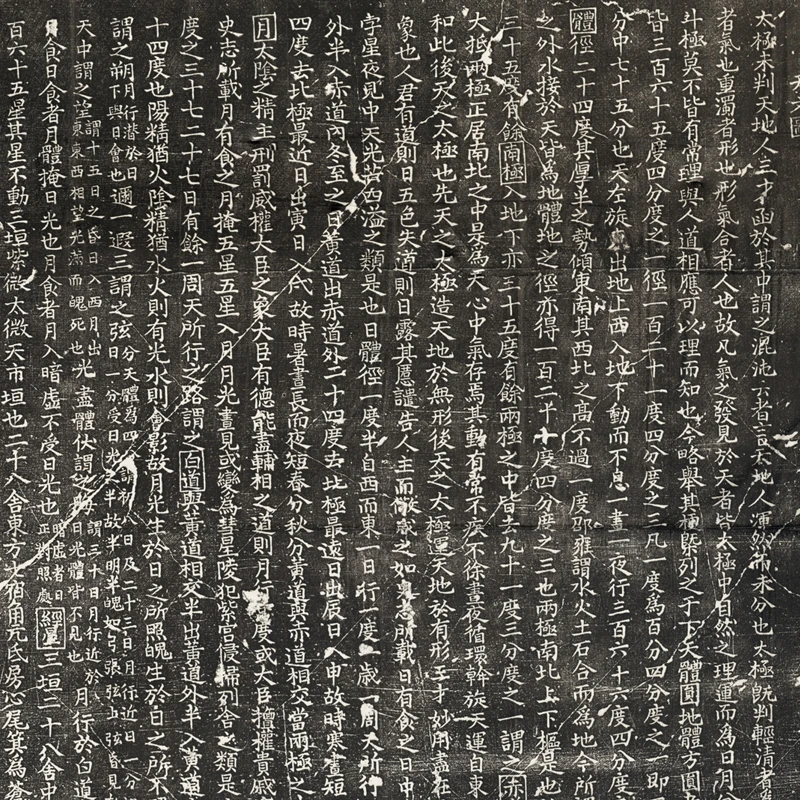 天文圖
太極未判天地人三才函於其中謂之混沌云者言天地人渾然而未分也太極既判輕清者為
者氣也重濁者形也形氣合者人也故凡氣之發見於天者皆太極中自然之理運而為日月
斗極莫不皆有常理與人道相應可以理而知也今略舉其梗槩列之于下天體圓地體方圓
皆三百六十五度四分度之一徑一百二十一度四分度之三凡一度為百分四分度之一即
分中七十五分也天左旋東出地上西入地下動而不息一晝一夜行三百六十六度四分度
體徑二十四度其厚半之勢傾東南其西北之高不過一度邵雍謂水火土石合而為地今所
之外水接於天皆為地體地之徑亦得一百二十一度四分度之三也兩極南北上下樞是也
三十五度有餘南極入地下亦三十五度有餘兩極之中皆去九十一度三分度之一謂之赤
大抵兩極正居南北之中是為天心中氣存焉其動有常不疾不徐晝夜循環斡旋天運自東
和此後天之太極也先天之太極造天地於無形後天之太極運天地於有形三才妙用盡在
象也人君有道則日五色失道則日露其慝譴告人主而儆戒之如史志所載日有食之日中
字星夜見中天光芒四溢之類是也日體徑一度半自西而東一日行一度一歲一周天所行
外半入赤道內冬至之日黃道出赤道外二十四度去北極最遠日出辰日入申故時寒晝短
四度去北極最近日出寅日入戌故時暑晝長而夜短春分秋分黃道與赤道相交當兩極之
月太陰之精主刑罰威權大臣之象大臣有德能盡輔相之道則月行常度或大臣擅權貴戚
史志所載月有食之月掩五星五星入月月光晝見或變為彗星陵犯紫宮侵掃列舍之類是
度之三十七二十七日有餘一周天所行之路謂之白道與黃道相交半出黃道外半入黃道
十四度也陽精猶火陰精猶水火則有光水則會影故月光生於日之所照魄生於日之所不
謂之朔月行潛於日下與日會也邇一遐三謂之弦分天體為四謂初八日及二十三日月行近日一分謂之近日一分受日光之半故半明半魄如弓張弦上弦昏見
天中謂之望謂十五日之昏日入西月出東東西相望光滿而魄死也光盡體伏謂之晦謂三十日月行近於日光體皆不見也月行於白道
月食日食者月體掩日光也月食者月入暗虛不受日光也暗虛者日正對照處經星三垣二十八舍中
百六十五星其星不動三垣紫微太微天市垣也二十八舍東方七宿角亢氐房心尾箕為蒼